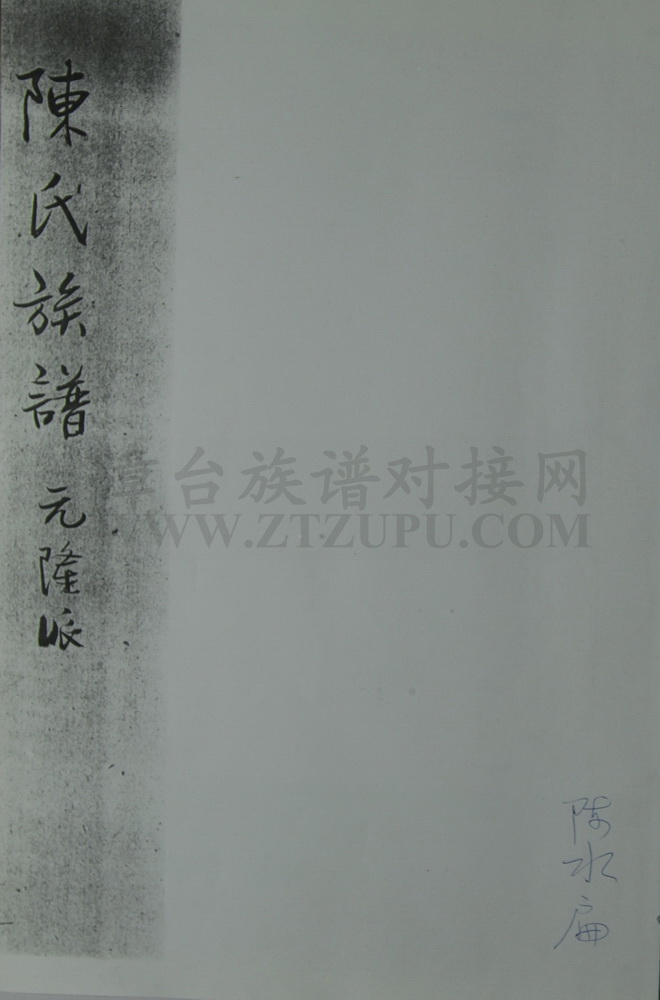 陳氏族譜 元隆派
漳台族谱对接网
WWW.ZTZUPU.COM
陈水扁